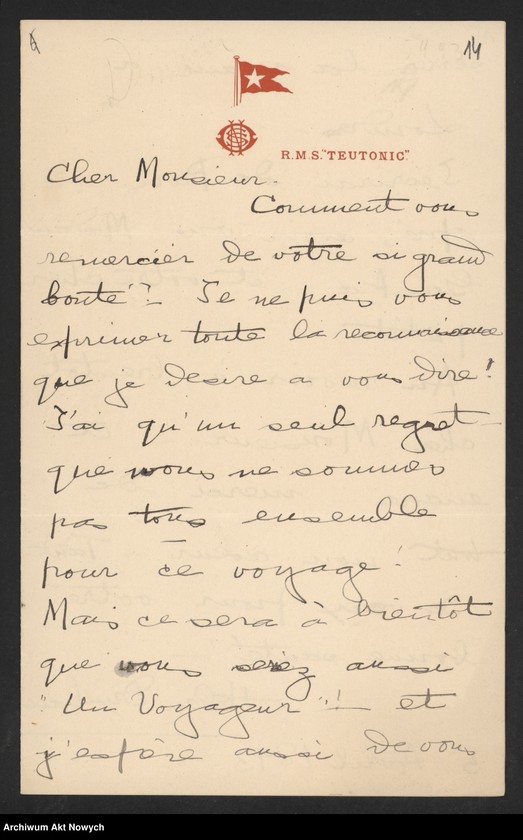 14
R.M.S. "TEUTONIC."
Cher Monsieur.
Comment vous
remercier de votre si grand
bonté"!- Je ne puis vous
exprimer toute la reconnaissance
que je desire a vous dire!
J'ai qu'un seul regret
que nous ne sommes
pas tous ensemble
pour ce voyage!
Mais ce sera à bientôt
que vous serez aussi
"Un Voyageur"!- et
j'espère aussi de vous
Archiwum Akt Nowych